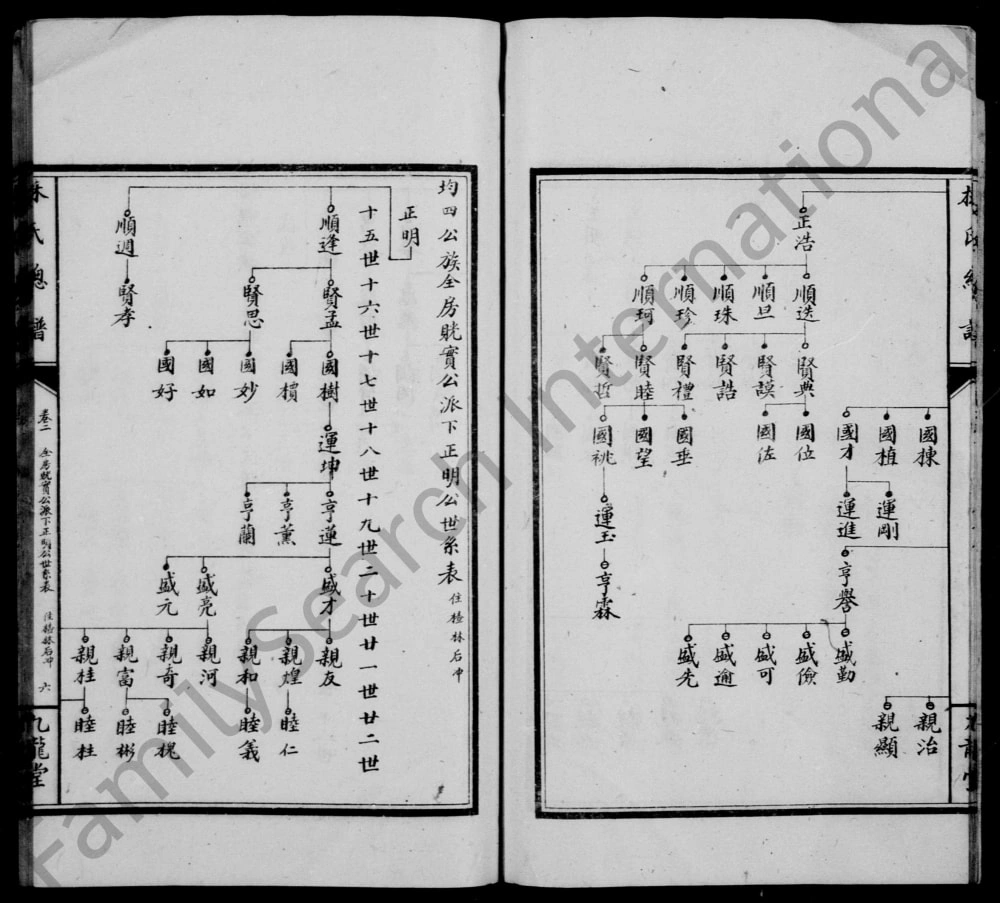 正浩
順迭
順旦
順珠
順珍
順珂
賢典
賢謨
賢誥
賢禮
賢睦
賢哲
國棟
國植
國才
國位
國佐
國垂
國望
國祧
運剛
運進
運玉
亨譽
亨霖
盛勤
盛儉
盛可
盛通
盛先
親治
親顯
均四公族全房晄實公派下正明公世系表
住榓林后冲
正明
十五世十六世十七世十八世十九世二十世廿一世廿二世
順逢
順週
賢孟
賢思
賢孝
國樹
國檟
國妙
國如
國好
運坤
亨蓮
亨薰
亨蘭
盛才
盛亮
盛元
親友
親煌
親和
親河
親奇
親富
親桂
睦仁
睦義
睦槐
睦彬
睦柱
林氏總譜
卷二
全房晄實公派下正明公世系表
六
九龍堂
FamilySearch International